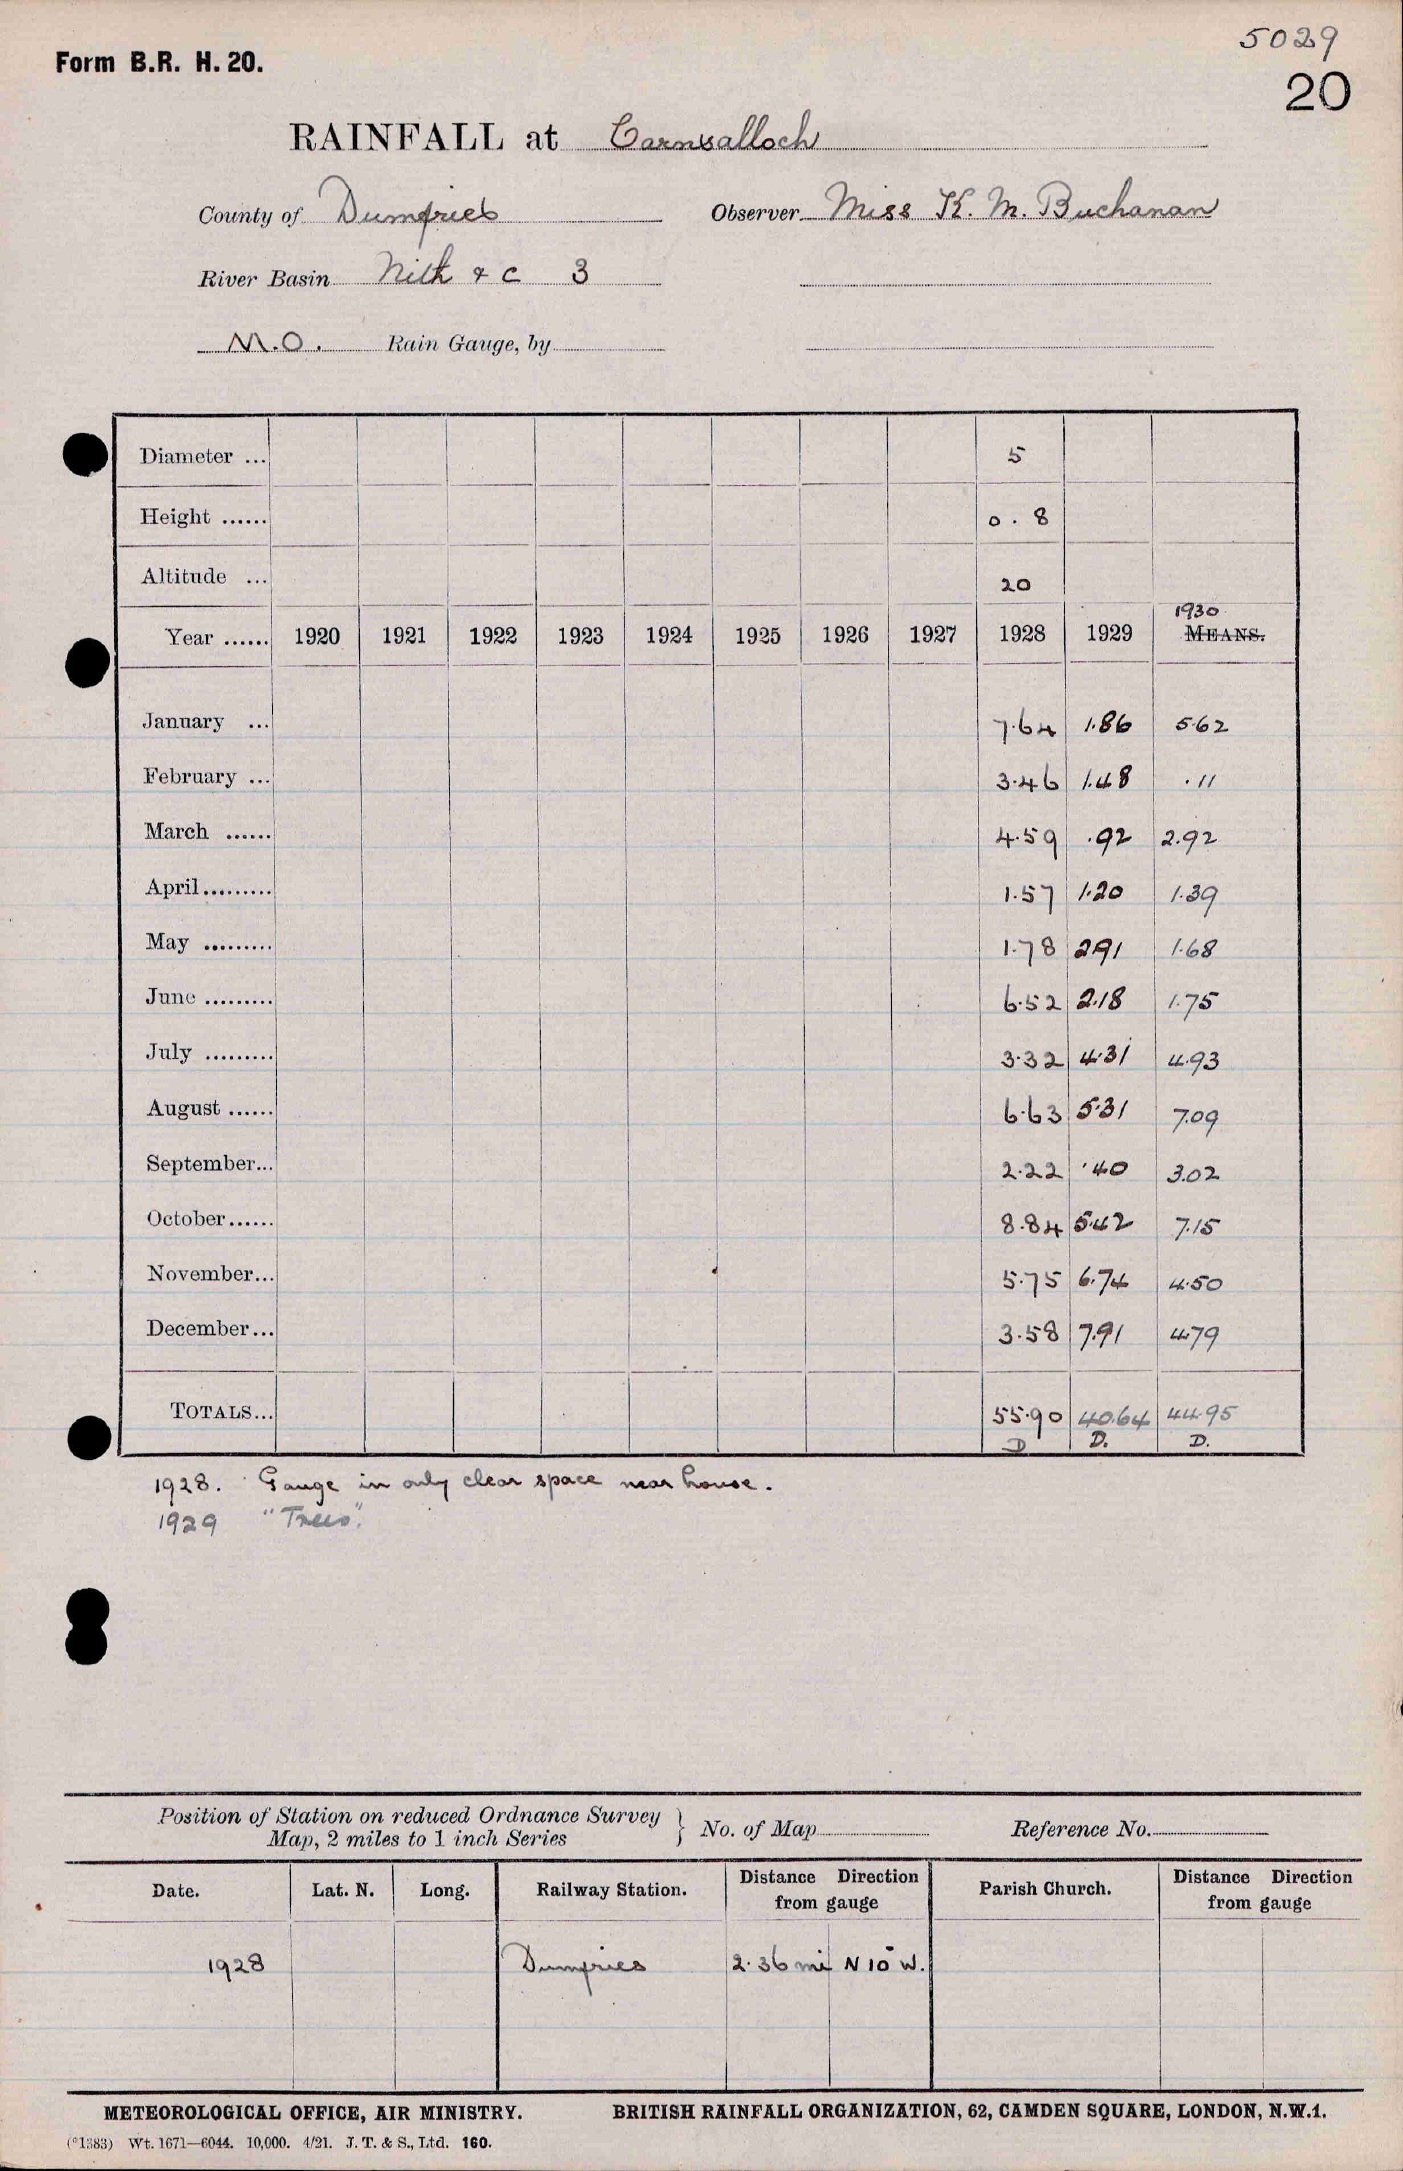 5029
Form B.R. H. 20.
20
RAINFALL at Carnsalloch
County of Dumfries Observer Miss K. M. Buchanan
River Basin Nith & c 3
M.O. Rain Gauge, by
Diameter ... 5
Height ...... 0.8
Altitude ... 20
1930
Year ...... 1920 1921 1922 1923 1924 1925 1926 1927 1928 1929 MEANS.
January ... 7.64 1.86 5.62
February ... 3.46 1.48 .11
March ...... 4.59 .92 2.92
April......... 1.57 1.20 1.39
May ......... 1.78 2.91 1.68
June ......... 6.52 2.18 1.75
July ......... 3.32 4.31 4.93
August ...... 6.63 5.31 7.09
September... 2.22 .40 3.02
October...... 8.84 5.42 7.15
November... 5.75 6.74 4.50
December... 3.58 7.91 4.79
TOTALS... 55.90 40.64 44.95
D D. D.
1928. Gauge in only clear space near house.
1929 "Trees".
Position of Station on reduced Ordnance Survey
Map, 2 miles to 1 inch Series } No. of Map Reference No.
Date. Lat. N. Long. Railway Station. Distance Direction from gauge Parish Church. Distance Direction from gauge
1928 Dumfries 2.36 mi N 10° W.
METEOROLOGICAL OFFICE, AIR MINISTRY. BRITISH RAINFALL ORGANIZATION, 62, CAMDEN SQUARE, LONDON, N.W.1.
(*1383) Wt. 1671—6044. 10,000. 4/21. J. T. & S., Ltd. 160.